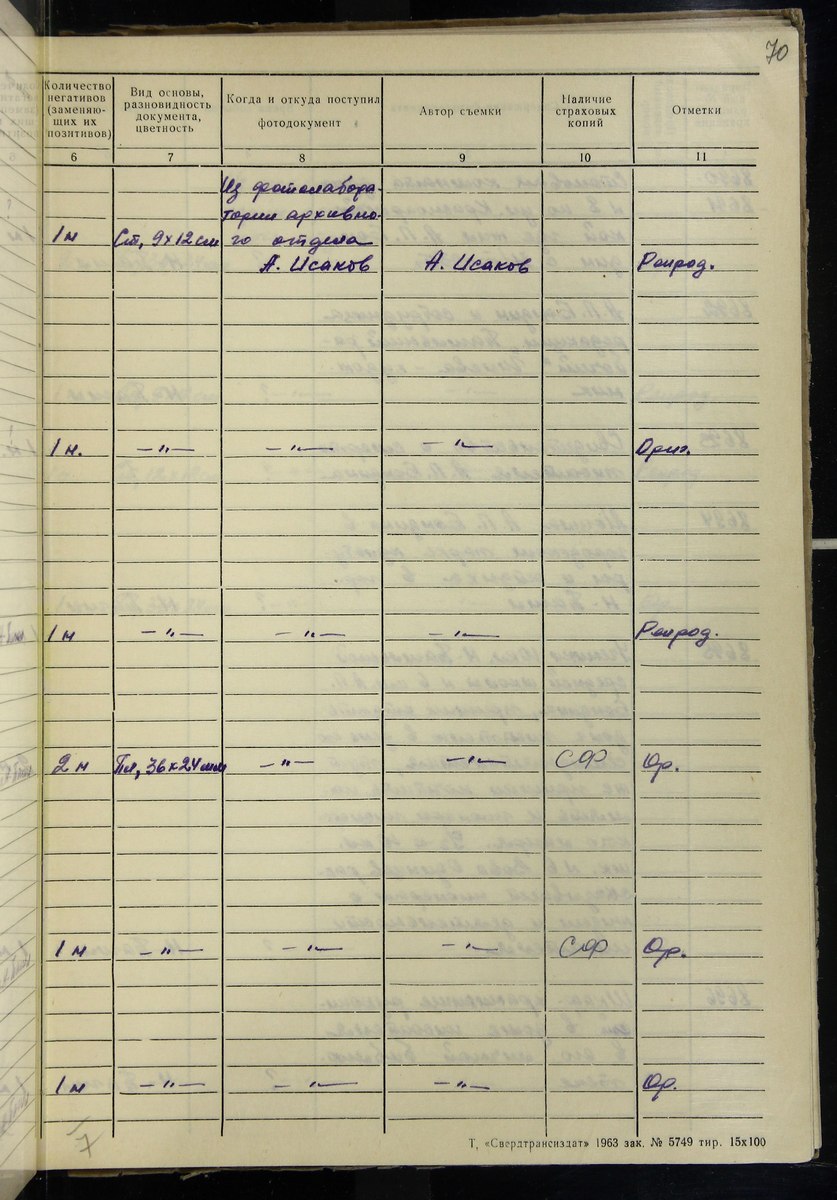 70
Количество негативов (заменяющих их позитивов) Вид основы, разновидность документа, цветность Когда и откуда поступил фотодокумент Автор съемки Наличие страховых копий Отметки
6 7 8 9 10 11
Из фотолабора-
тории архивно-
1 н Ст, 9х12 см го отдела
А. Исаков А. Исаков Репрод.
1 н. —"— —"— —"— Ориг.
1 н —"— —"— —"— Репрод.
2 н Пл, 36х24 мм —"— —"— СФ Ор.
1 н —"— —"— —"— СФ Ор.
1 н —"— —"— —"— Ор.
7
Т. «Свердтрансиздат» 1963 зак. № 5749 тир. 15х100